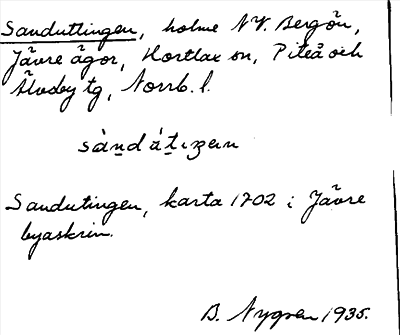 Sanduttingen, holme NV. Bergön,
Jävre ägor, Hortlax sn, Piteå och
Älvsby tg, Norrb. l.
Sandutingen, karta 1702 i Jävre
byaskrin.
B. Nygren 1935.